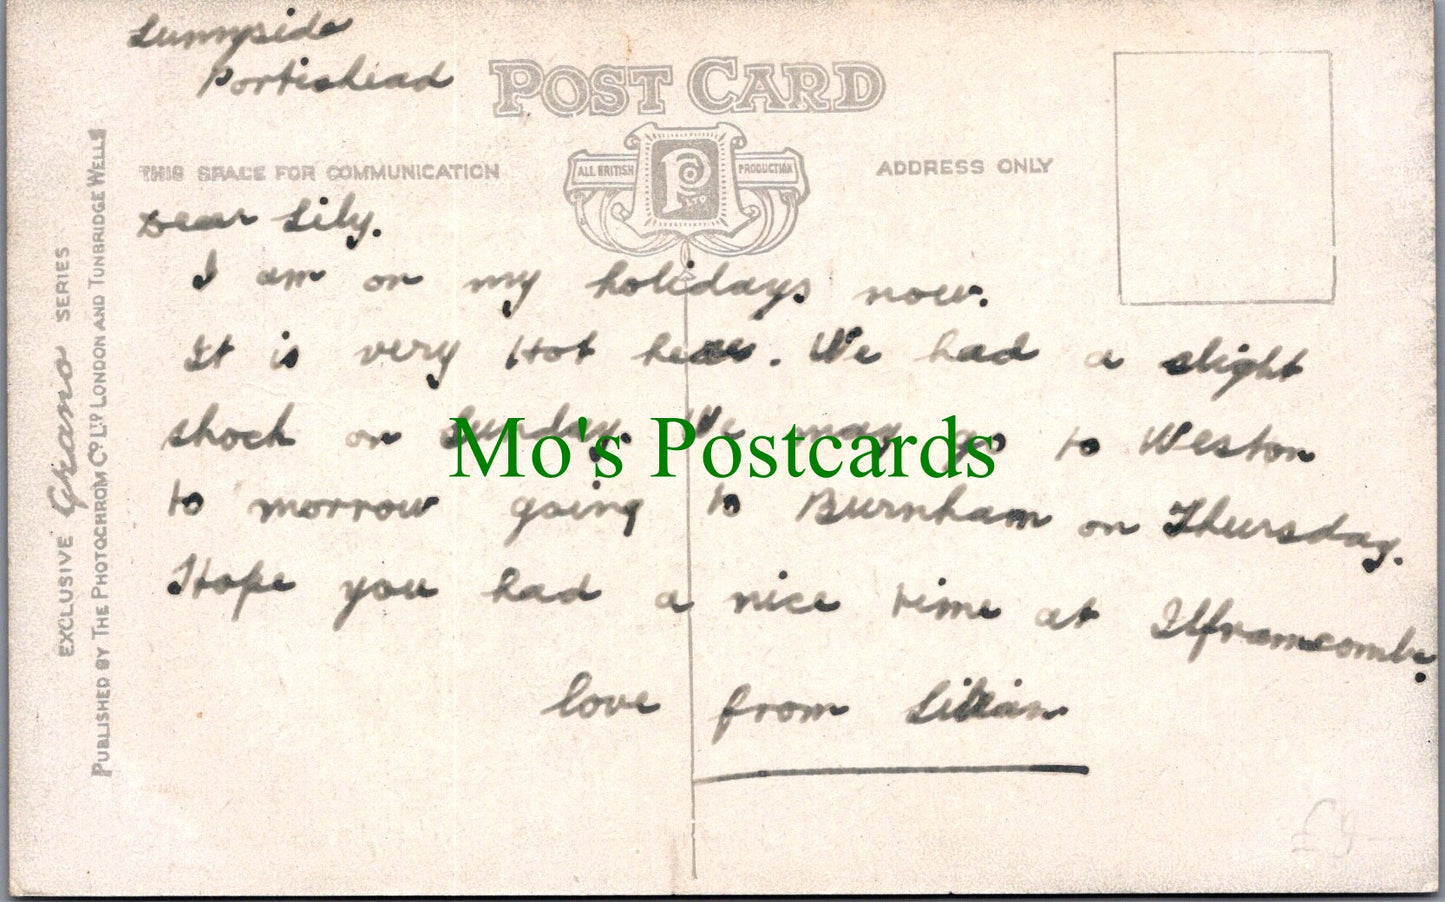 Sunnyside
Portishead
POST CARD
THIS SPACE FOR COMMUNICATION
ALL BRITISH PRODUCTION
ADDRESS ONLY
Dear Lily.
I am on my holidays now.
It is very Hot here. We had a slight
shock on Sunday. We may go to Weston
to morrow going to Burnham on Thursday.
Hope you had a nice time at Ilframcombe.
love from Lillian
EXCLUSIVE Grano SERIES
PUBLISHED BY THE PHOTOCHROM CO. LTD LONDON AND TUNBRIDGE WELLS
Mo's Postcards